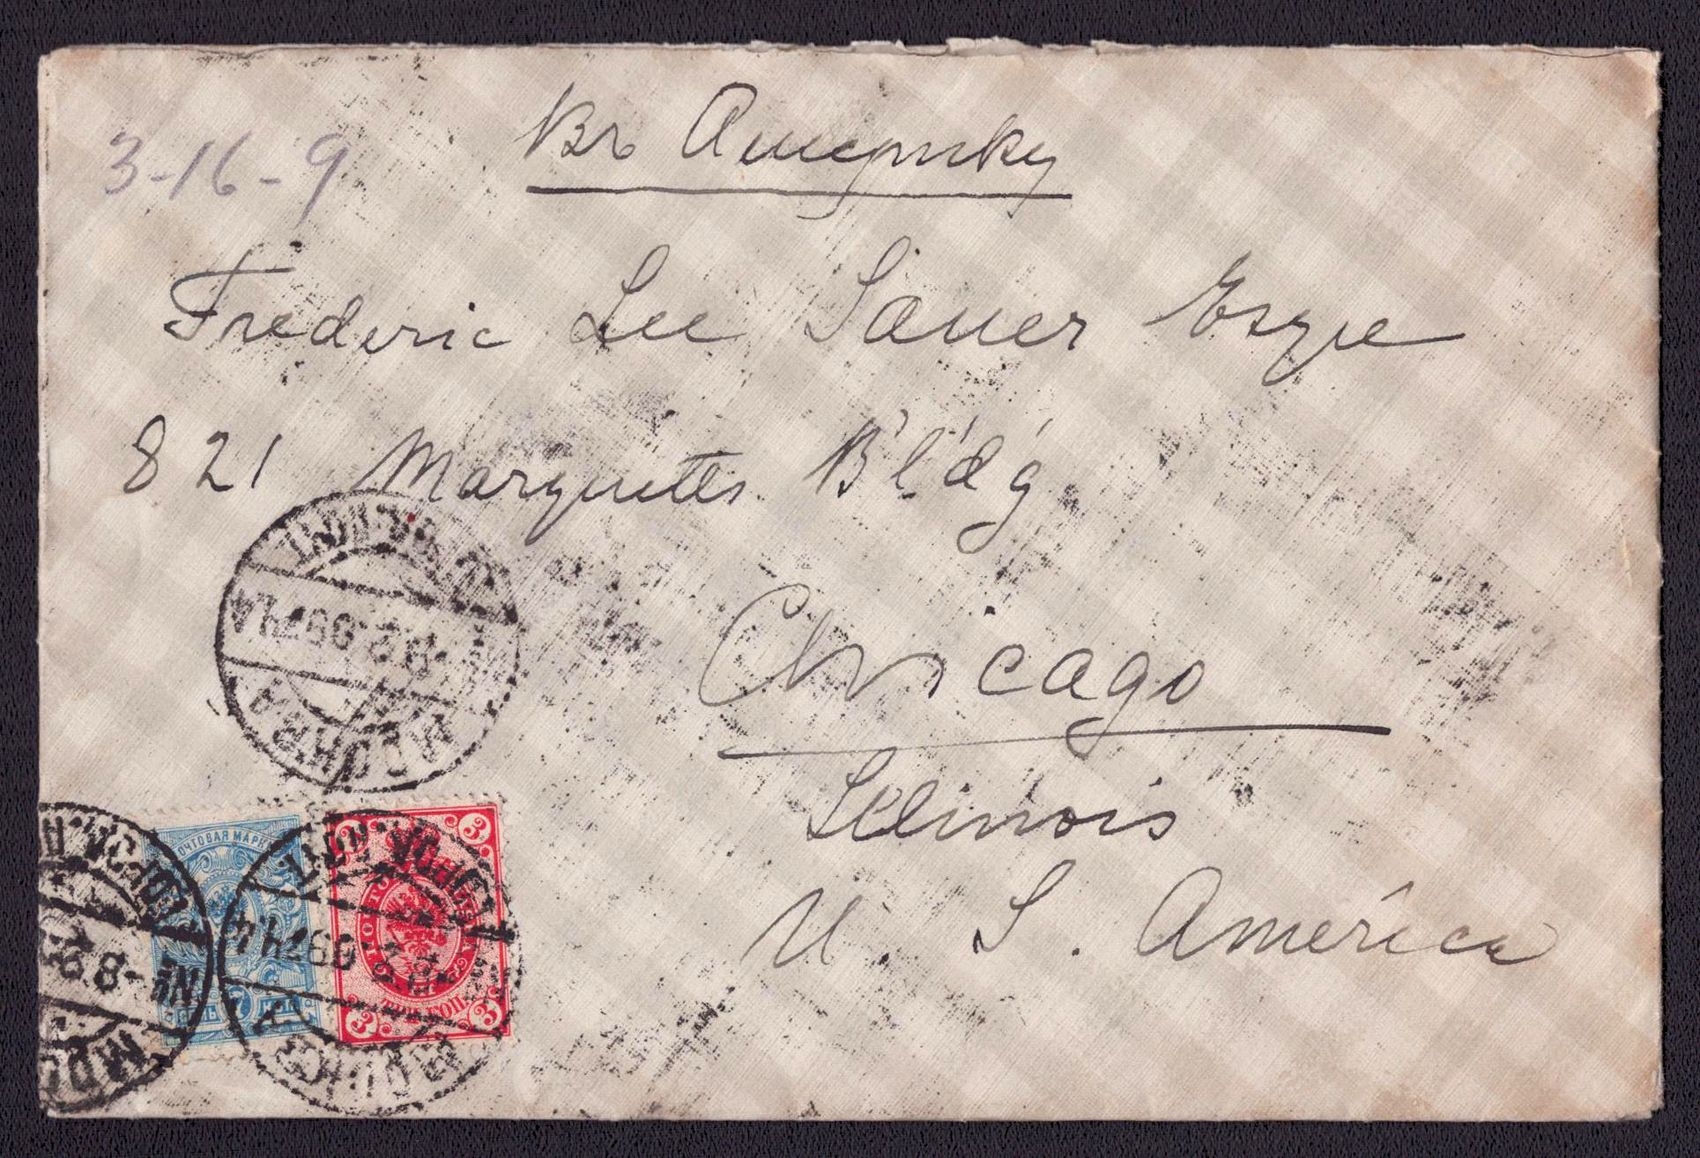 3-16-9
Въ Америку
Frederic Lee Sauer Esqre
821 Marquette B'l'd'g
Chicago
Illinois
U. S. America
МОСКВА
ПОЧТОВАЯ МАРК
3 3
МОСКВА
3 3